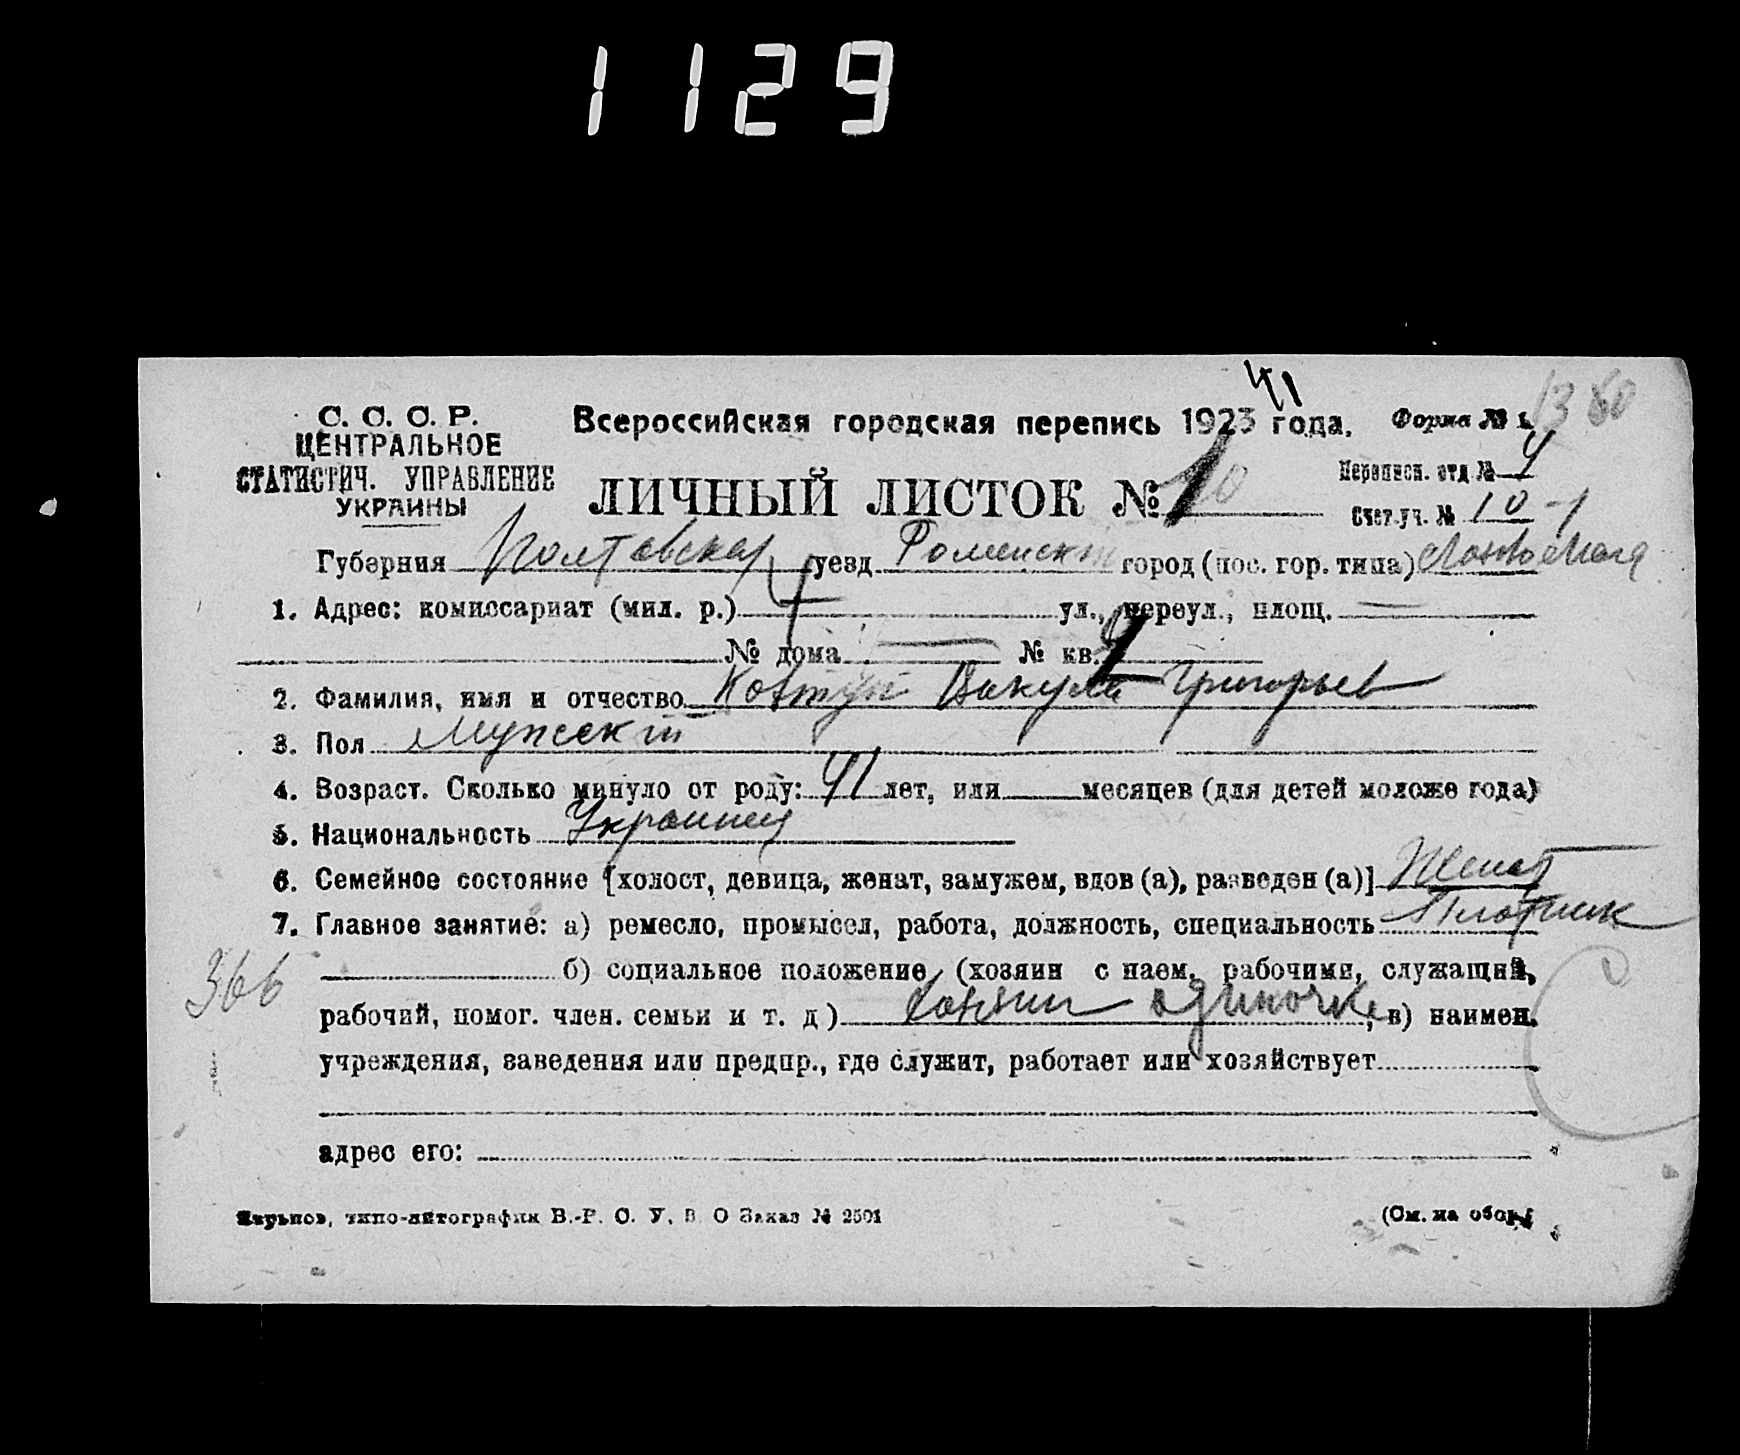 1129
41
С. С. С. Р.
ЦЕНТРАЛЬНОЕ
СТАТИСТИЧ. УПРАВЛЕНИЕ
УКРАИНЫ
Всероссийская городская перепись 1923 года. Форма № 1. 1380
ЛИЧНЫЙ ЛИСТОК № 10
Переписн. отд № 4
Счет.уч. № 10-1
Губерния Полтавская уезд Роменский город (пос. гор. типа)
1. Адрес: комиссариат (мил. р.) ул., переул., площ.
№ дома № кв.
2. Фамилия, имя и отчество Ковтун Вакула Григорьев
3. Пол Мужский
4. Возраст. Сколько минуло от роду: 41 лет, или месяцев (для детей моложе года)
5. Национальность Украинец
6. Семейное состояние [холост, девица, женат, замужем, вдов (а), разведен (а)] Женат
7. Главное занятие: а) ремесло, промысел, работа, должность, специальность Плотник
366
б) социальное положение (хозяин с наем. рабочими, служащий,
рабочий, помог. член. семьи и т. д) Хозяин одиночка, в) наимен.
учреждения, заведения или предпр., где служит, работает или хозяйствует
адрес его:
Харьков, типо-литография В.-Р. О. У. В. О Заказ № 2501 (См. на обор.)